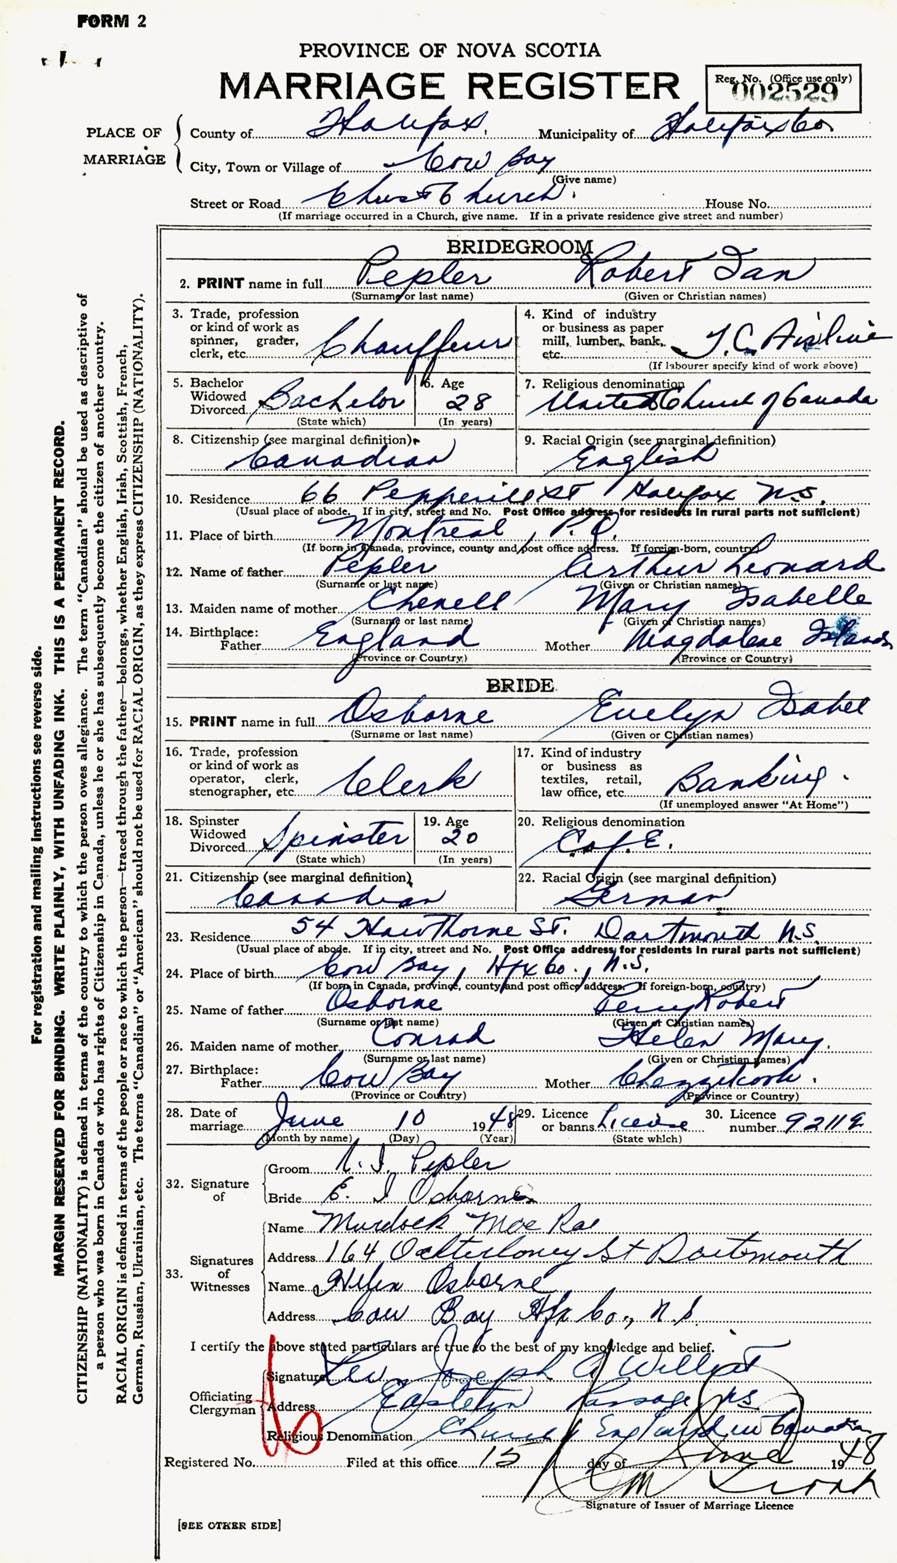 FORM 2
PROVINCE OF NOVA SCOTIA
MARRIAGE REGISTER
Reg. No. (Office use only)
002529
PLACE OF MARRIAGE
County of Halifax, Municipality of Halifax Co
City, Town or Village of Cow Bay
(Give name)
Street or Road Christ Church. House No.
(If marriage occurred in a Church, give name. If in a private residence give street and number)
BRIDEGROOM
2. PRINT name in full Pepler Robert Ian
(Surname or last name) (Given or Christian names)
3. Trade, profession or kind of work as spinner, grader, clerk, etc. Chauffeur
4. Kind of industry or business as paper mill, lumber, bank, etc. T.C. Airline
(If labourer specify kind of work above)
5. Bachelor Widowed Divorced Bachelor
(State which)
6. Age 28
(In years)
7. Religious denomination
United Church of Canada
8. Citizenship (see marginal definition)
Canadian
9. Racial Origin (see marginal definition)
English
10. Residence 66 Pepperell St Halifax N.S.
(Usual place of abode. If in city, street and No. Post Office address for residents in rural parts not sufficient)
11. Place of birth Montreal, P.Q.
(If born in Canada, province, county and post office address. If foreign-born, country)
12. Name of father Pepler Arthur Leonard
(Surname or last name) (Given or Christian names)
13. Maiden name of mother Chenell Mary Isabelle
(Surname or last name) (Given or Christian names)
14. Birthplace: Father England Mother Magdalene Islands
(Province or Country) (Province or Country)
BRIDE
15. PRINT name in full Osborne Evelyn Isabel
(Surname or last name) (Given or Christian names)
16. Trade, profession or kind of work as operator, clerk, stenographer, etc. Clerk
17. Kind of industry or business as textiles, retail, law office, etc. Banking.
(If unemployed answer "At Home")
18. Spinster Widowed Divorced Spinster
(State which)
19. Age 20
(In years)
20. Religious denomination
C of E.
21. Citizenship (see marginal definition)
Canadian
22. Racial Origin (see marginal definition)
German
23. Residence 54 Hawthorne St. Dartmouth N.S
(Usual place of abode. If in city, street and No. Post Office address for residents in rural parts not sufficient)
24. Place of birth Cow Bay, Hfx Co., N.S.
(If born in Canada, province, county and post office address. If foreign-born, country)
25. Name of father Osborne Percy Robert
(Surname or last name) (Given or Christian names)
26. Maiden name of mother Conrad Helen Mary.
(Surname or last name) (Given or Christian names)
27. Birthplace: Father Cow Bay Mother Chezzetcook.
(Province or Country) (Province or Country)
28. Date of marriage June 10 1948
(Month by name) (Day) (Year)
29. Licence or banns License
(State which)
30. Licence number
32. Signature of
Groom R. I. Pepler
Bride E. I Osborne
33. Signatures of Witnesses
Name Murdock Moe Rae
Address 164 Ochterloney St Dartmouth
Name Helen Osborne
Address Cow Bay Hfx Co., N.S
I certify the above stated particulars are true to the best of my knowledge and belief.
Officiating Clergyman
Signature Rev. Joseph
Address Eastern Passage NS
Religious Denomination Church of England in Canada
Registered No. Filed at this office 15 day of June 1948
Signature of Issuer of Marriage Licence
[SEE OTHER SIDE]
For registration and mailing instructions see reverse side.
MARGIN RESERVED FOR BINDING. WRITE PLAINLY, WITH UNFADING INK. THIS IS A PERMANENT RECORD.
CITIZENSHIP (NATIONALITY) is defined in terms of the country to which the person owes allegiance. The term "Canadian" should be used as descriptive of
a person who was born in Canada or who has rights of Citizenship in Canada, unless he or she has subsequently become the citizen of another country.
RACIAL ORIGIN is defined in terms of the people or race to which the person—traced through the father—belongs, whether English, Irish, Scottish, French,
German, Russian, Ukrainian, etc. The terms "Canadian" or "American" should not be used for RACIAL ORIGIN, as they express CITIZENSHIP (NATIONALITY).